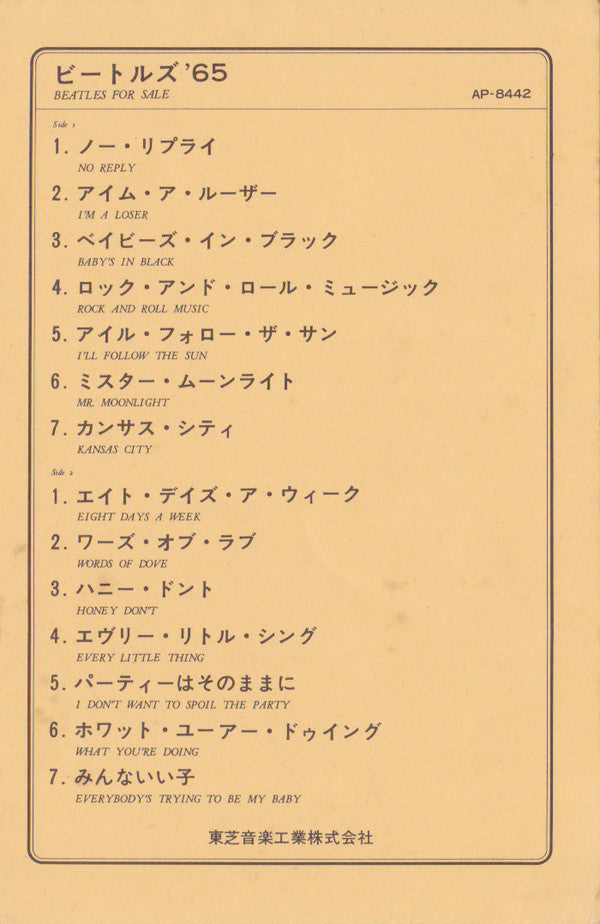 ビートルズ '65
BEATLES FOR SALE
AP-8442
Side 1
1. ノー・リプライ
NO REPLY
2. アイム・ア・ルーザー
I'M A LOSER
3. ベイビーズ・イン・ブラック
BABY'S IN BLACK
4. ロック・アンド・ロール・ミュージック
ROCK AND ROLL MUSIC
5. アイル・フォロー・ザ・サン
I'LL FOLLOW THE SUN
6. ミスター・ムーンライト
MR. MOONLIGHT
7. カンサス・シティ
KANSAS CITY
Side 2
1. エイト・デイズ・ア・ウィーク
EIGHT DAYS A WEEK
2. ワーズ・オブ・ラブ
WORDS OF DOVE
3. ハニー・ドント
HONEY DON'T
4. エヴリー・リトル・シング
EVERY LITTLE THING
5. パーティーはそのままに
I DON'T WANT TO SPOIL THE PARTY
6. ホワット・ユーアー・ドゥイング
WHAT YOU'RE DOING
7. みんないい子
EVERYBODY'S TRYING TO BE MY BABY
東芝音楽工業株式会社